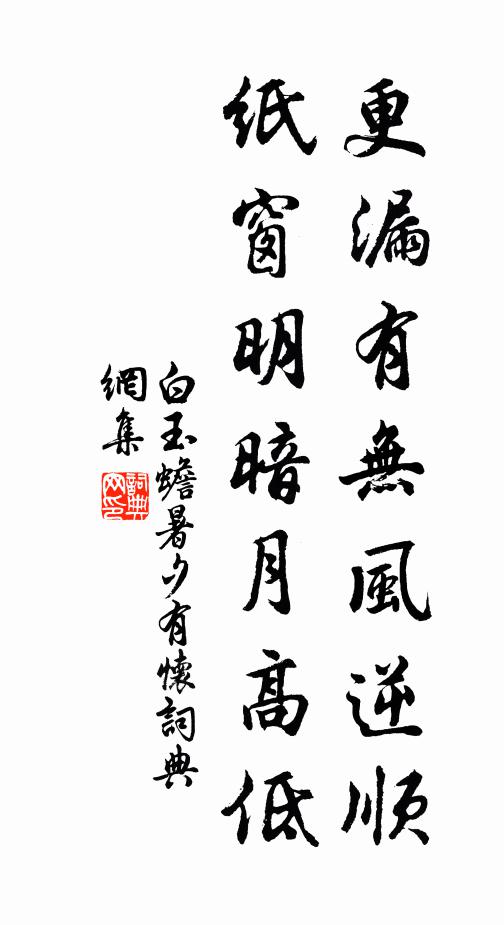 更漏有無風逆順
紙窗明暗月高低
白玉蟾暑夕有懷詞典
網集
詞典
网印